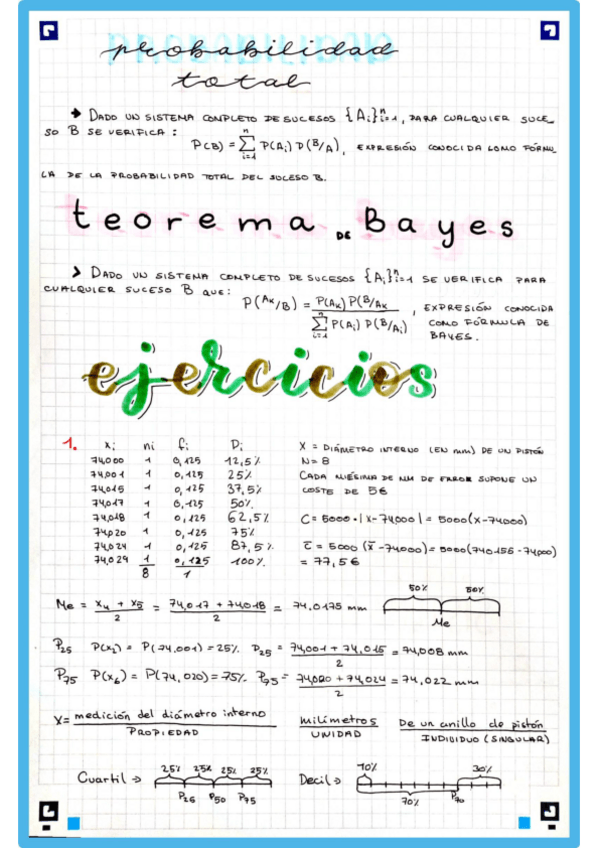 probabilidad
total
→ DADO UN SISTEMA COMPLETO DE SUCESOS {Ai}ⁿi=1, PARA CUALQUIER SUCE_
SO B SE VERIFICA :
P(B) = Σⁿi=1 P(Ai) P(B/A), EXPRESIÓN CONOCIDA COMO FÓRMU_
LA DE LA PROBABILIDAD TOTAL DEL SUCESO B.
teorema DE Bayes
> DADO UN SISTEMA COMPLETO DE SUCESOS {Ai}ⁿi=1 SE VERIFICA PARA
CUALQUIER SUCESO B QUE:
P(AK/B) = P(AK) P(B/AK) / Σⁿi=1 P(Ai) P(B/Ai) , EXPRESIÓN CONOCIDA
COMO FÓRMULA DE
BAYES.
ejercicios
1. xi ni fi Di
74,000 1 0,125 12,5%
74,001 1 0,125 25%
74,015 1 0,125 37,5%
74,017 1 0,125 50%
74,018 1 0,125 62,5%
74,020 1 0,125 75%
74,024 1 0,125 87,5%
74,029 1 0,125 100%
8 1
X = DIÁMETRO INTERNO (EN mm) DE UN PISTÓN
N= 8
CADA MILÉSIMA DE MM DE ERROR SUPONE UN
COSTE DE 5€
C = 5000 · |x - 74,000| = 5000 (x-74,000)
C̄ = 5000 (x̄ - 74,000) = 5000 (740,156 - 74,000)
= 77,5€
Me = x4 + x5 / 2 = 74,017 + 74,018 / 2 = 74,0175 mm
50% 50%
Me
P25 P(x2) = P(74,001) = 25% P25 = 74,001 + 74,015 / 2 = 74,008 mm
P75 P(x6) = P(74,020) = 75% P75 = 74,020 + 74,024 / 2 = 74,022 mm
X= medición del diámetro interno / PROPIEDAD milímetros / UNIDAD De un anillo de pistón / INDIVIDUO (SINGULAR)
Cuartil → 25% 25% 25% 25%
P25 P50 P75
Decil → 10% 30%
70% P70